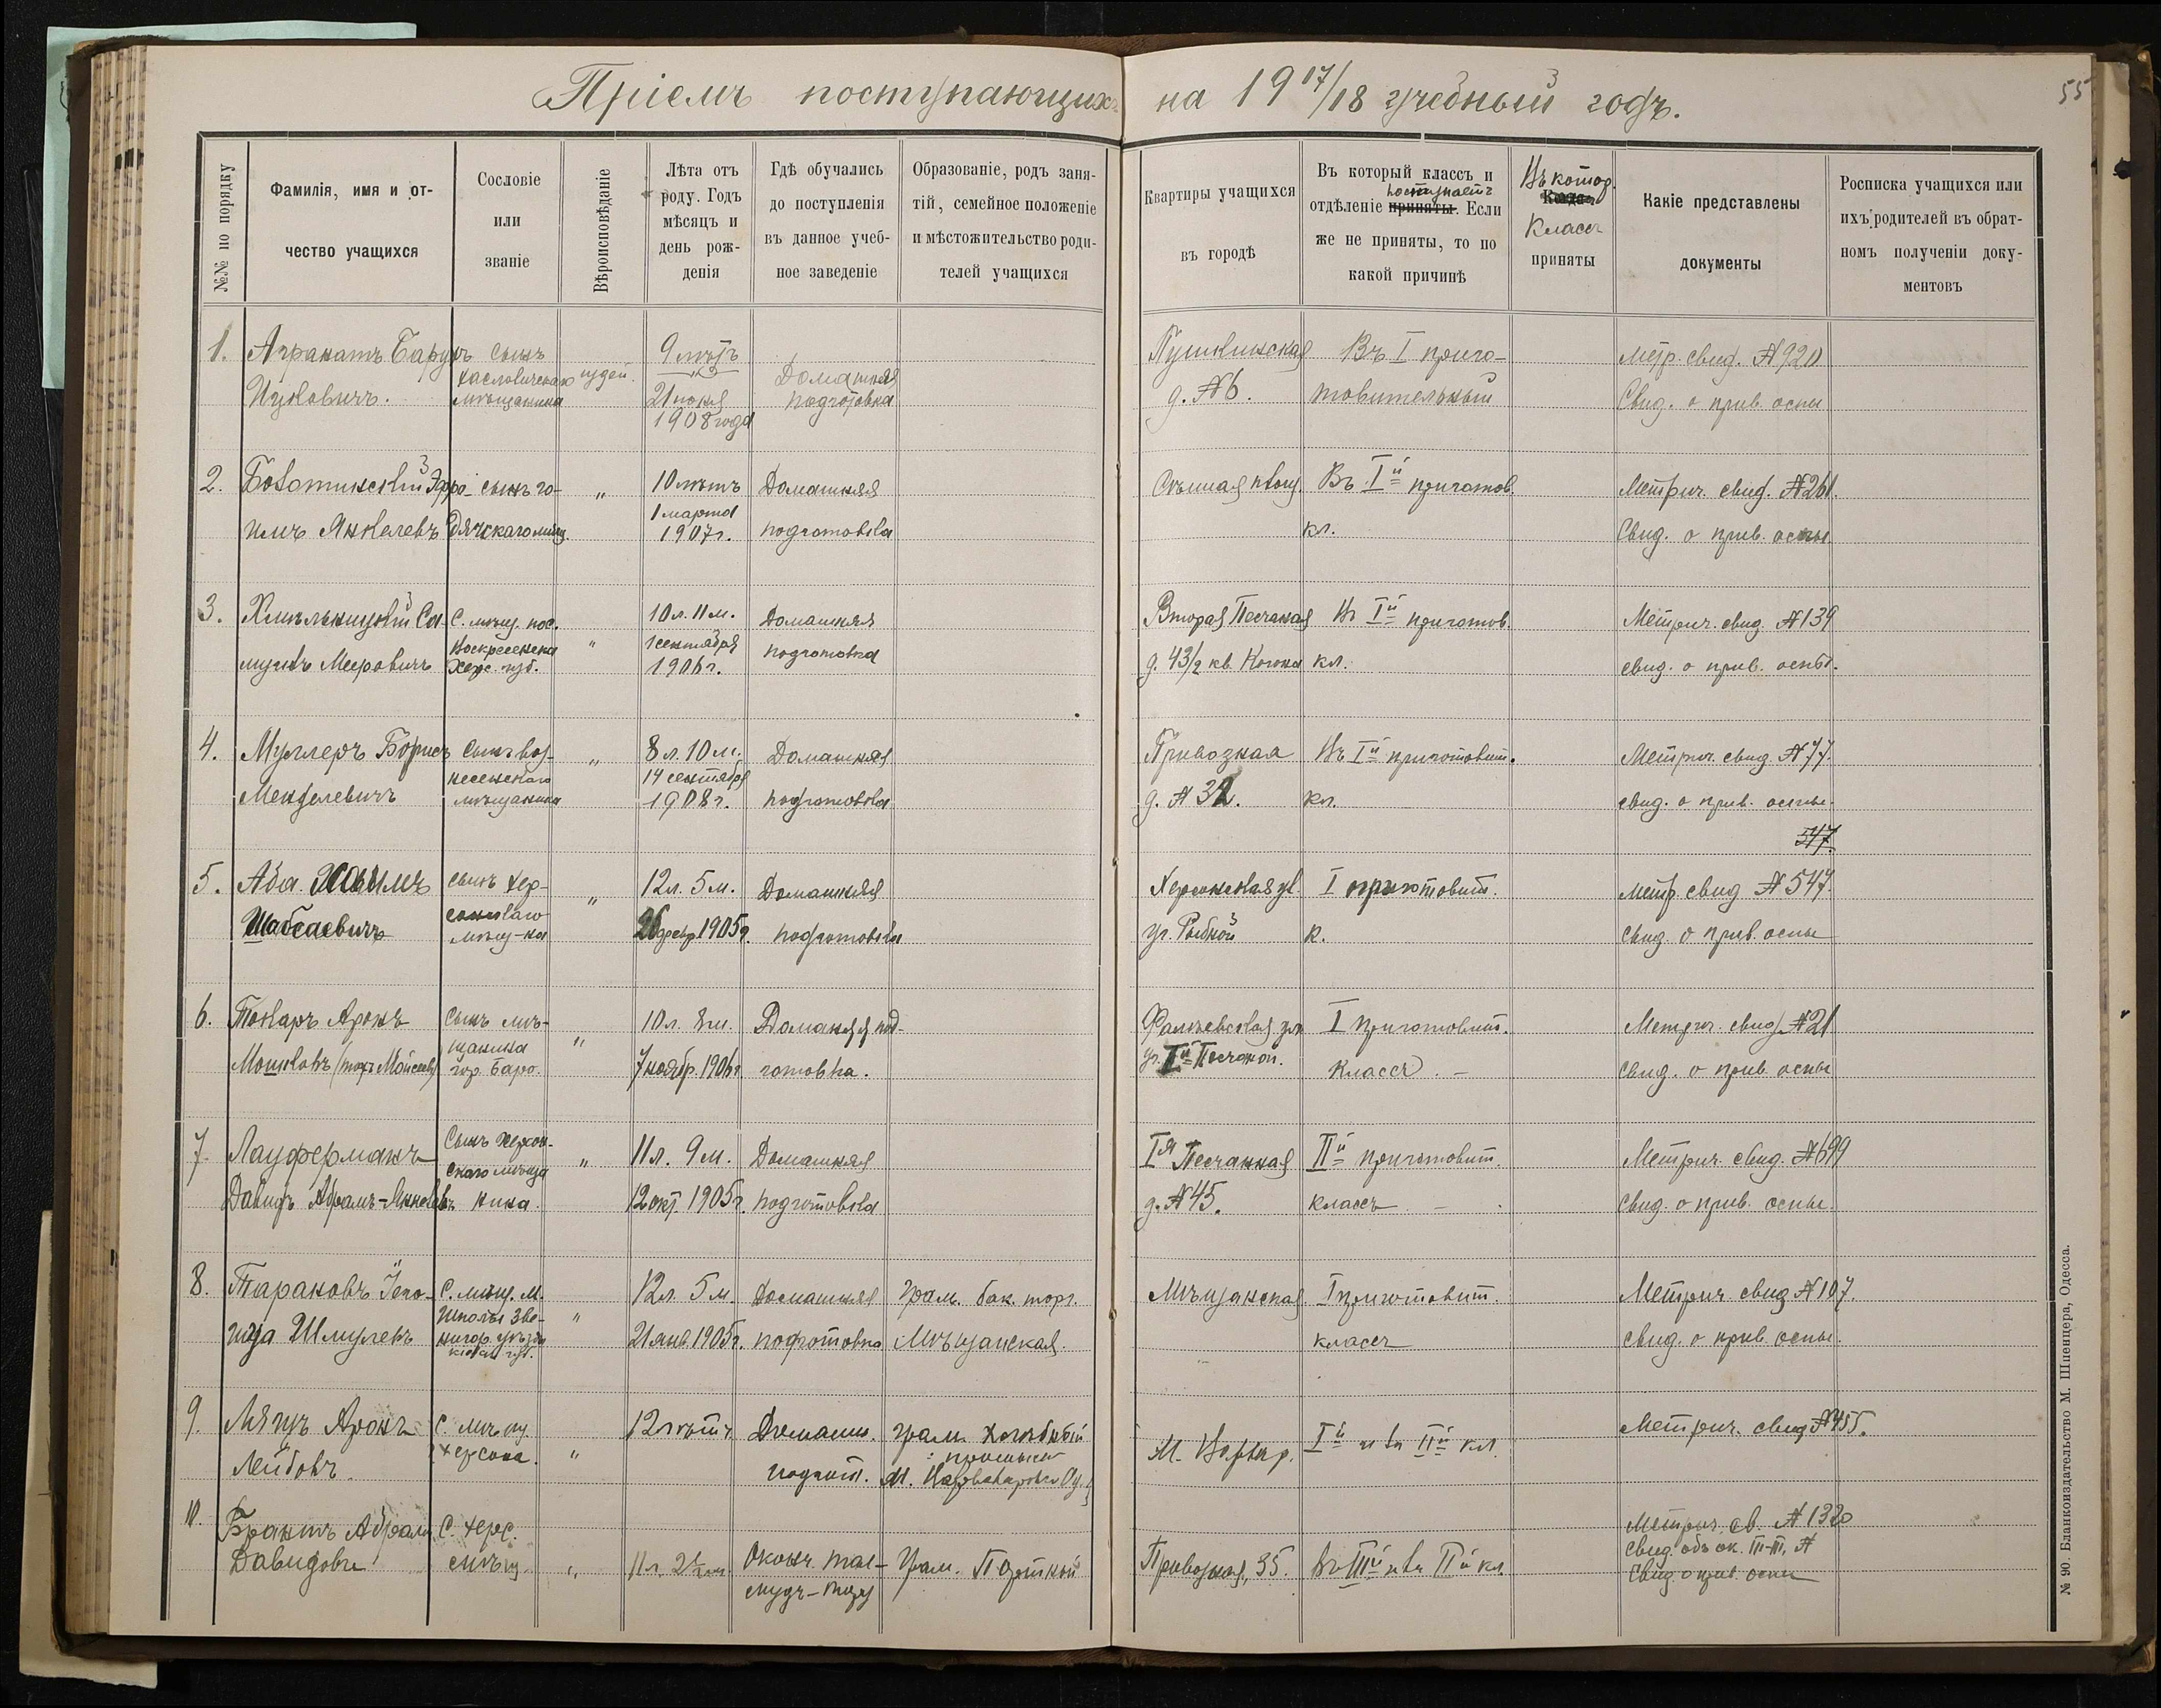 Пріемъ поступающихъ на 1917/18 учебный годъ.
55
№№ по порядку
Фамилія, имя и от-
чество учащихся
Сословіе
или
званіе
Вѣроисповѣданіе
Лѣта отъ
роду. Годъ
мѣсяцъ и
день рож-
денія
Гдѣ обучались
до поступленія
въ данное учеб-
ное заведеніе
Образованіе, родъ заня-
тій, семейное положеніе
и мѣстожительство роди-
телей учащихся
Квартиры учащихся
въ городѣ
Въ который классъ и
поступаетъ
отдѣленіе приняты. Если
же не приняты, то по
какой причинѣ
Въ котор.
Классъ
приняты
Какіе представлены
документы
Росписка учащихся или
ихъ родителей въ обрат-
номъ полученіи доку-
ментовъ
1. Агранатъ Барухъ
Ицковичъ.
сынъ
хаславичскаго
мѣщанина
іудей.
9 лѣтъ
21 іюня
1908 года
Домашняя
подготовка
Пушкинская
д. №6.
Въ I приго-
товительный
Метр. свид. №920
Свид. о прив. оспы
2. Боготинскій Эфро-
имъ Янкелевъ
сынъ го-
рдячскаго мѣщ.
"
10 лѣтъ
1 марта
1907 г.
Домашняя
подготовка
Сѣнная площ.
Въ Iй приготов.
кл.
Метрич. свид. №261.
Свид. о прив. оспы.
3. Хмѣльницкій Са-
муилъ Меировичъ
С. мѣщ. пос.
Воскресенска
Херс. губ.
"
10 л. 11 м.
1 сентября
1906 г.
Домашняя
подготовка
Вторая Песчаная
д. 43/2 кв. Когона
Въ Iй приготов.
кл.
Метрич. свид. №139
свид. о прив. оспы.
4. Муллеръ Борисъ
Менделевичъ
Сынъ воз-
несенскаго
мѣщанина
"
8 л. 10 м.
14 сентября
1908 г.
Домашняя
подготовка
Привозная
д. № 32.
Въ Iй приготовит.
кл.
Метрич. свид. №77.
свид. о прив. оспы.
547.
5. Аба Хаимъ
Шабсаевичъ
сынъ хер-
сонскаго
мѣщ-на
"
12 л. 5 м.
26 февр. 1905 г.
Домашняя
подготовка
Херсонская ул.
уг. Рыбной
I приготовит.
к.
метр. свид №547.
Свид. о прив. оспы
6. Токаръ Аронъ
Мошковъ (тожъ Мойсеевъ)
Сынъ мѣ-
щанина
гор. Баро.
"
10 л. 8 м.
7 ноябр. 1906 г.
Домашняя под-
готовка.
Фалѣевская ул.
уг. Iй Песчаной.
I приготовит.
Классъ. –
Метрич. свид. №21
Свид. о прив. оспы
7. Лауферманъ
Давидъ Абрамъ-Янкелевъ
Сынъ херсон-
скаго мѣща
нина.
"
11 л. 9 м.
12 окт. 1905 г.
Домашняя
подготовка
Iя Песчанная
д. №45.
IIй приготовит.
классъ –
Метрич. свид. №699
Свид. о прив. оспы.
8. Тарановъ Іего-
шуа Шмулевъ
С. мѣщ. м.
Шполы Зве-
нигор. уѣзда
кіевск. губ.
"
12 л. 5 м.
21 янв. 1905 г.
Домашняя
подготовка
Грам. бак. торг.
Мѣщанская.
Мѣщанская
I приготовит.
классъ
Метрич свид №107.
свид. о прив. оспы.
9. Ляпъ Аронъ
Лейбовъ.
С. мѣщ
Херсона.
"
12 лѣтъ.
Домашн.
подгот.
Грам. Хлѣбный
Iй и въ IIй кл
Метрич. свид №455.
10. Брантъ Абрам
Давидовъ
С. херс.
мѣщ.
"
11 л. 2½ м.
Оконч. тал-
мудъ-тору
Грам. Портной
Привозная, 35.
въ IIIй и въ IIй кл
Метрич. св. №1320
Свид. объ ок. III-III, №
Свид. о прив. оспы
№ 90. Бланкоиздательство М. Шпенцера, Одесса.